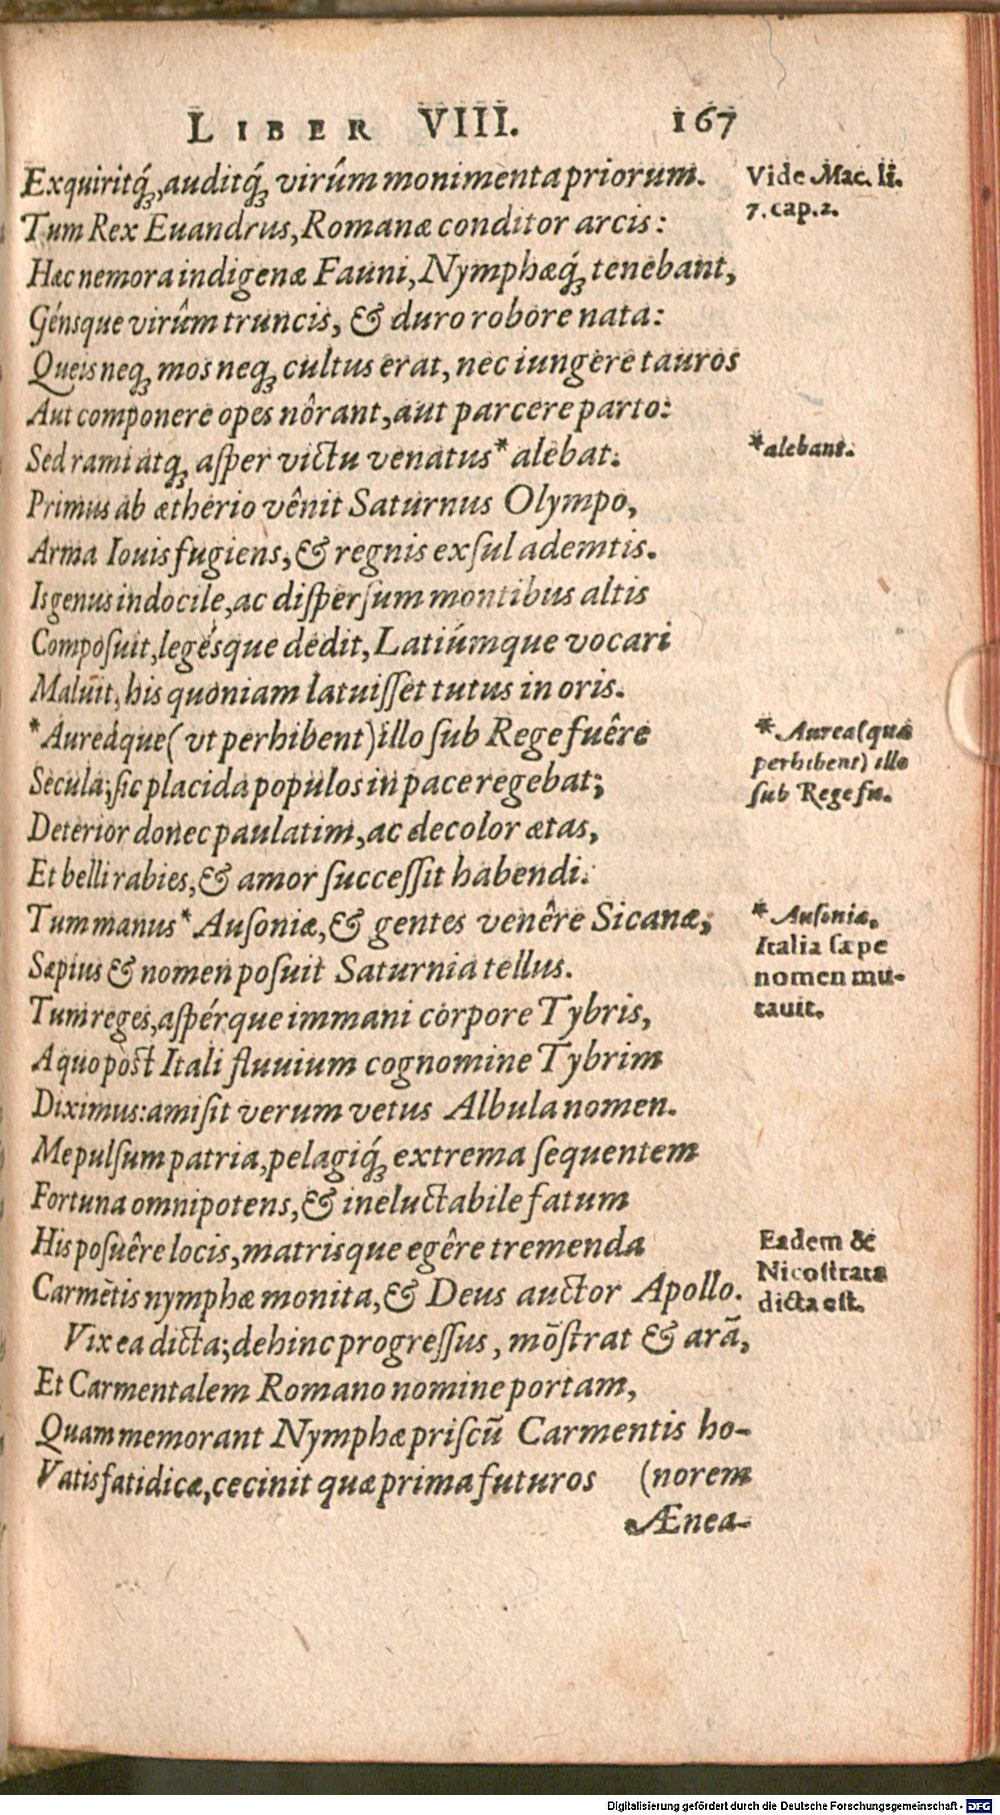 LIBER VIII. 167
Exquiritq́;, auditq́; virûm monimenta priorum.
Tum Rex Euandrus, Romanæ conditor arcis:
Hæc nemora indigenæ Fauni, Nymphæq́; tenebant,
Génsque virûm truncis, & duro robore nata:
Queis neq; mos neq; cultus erat, nec iungere tauros
Aut componere opes nôrant, aut parcere parto:
Sed rami atq; aſper victu venatus * alebat.
Primus ab ætherio vênit Saturnus Olympo,
Arma Iouis fugiens, & regnis exſul ademtis.
Is genus indocile, ac diſperſum montibus altis
Compoſuit, legésque dedit, Latiúmque vocari
Maluit, his quoniam latuiſſet tutus in oris.
* Aureáque (vt perhibent) illo ſub Rege fuêre
Secula; ſic placida populos in pace regebat;
Deterior donec paulatim, ac decolor ætas,
Et belli rabies, & amor ſucceſſit habendi.
Tum manus * Auſoniæ, & gentes venêre Sicanæ,
Sæpius & nomen poſuit Saturnia tellus.
Tum reges, aſpérque immani corpore Tybris,
A quo pòst Itali fluuium cognomine Tybrim
Diximus: amiſit verum vetus Albula nomen.
Me pulſum patria, pelagiq́; extrema ſequentem
Fortuna omnipotens, & ineluctabile fatum
His poſuêre locis, matrisque egêre tremenda
Carmẽtis nymphæ monita, & Deus auctor Apollo.
Vix ea dicta; dehinc progreſſus, mõſtrat & arã,
Et Carmentalem Romano nomine portam,
Quam memorant Nymphæ priſcũ Carmentis ho-
Vatis fatidicæ, cecinit quæ prima futuros (norem
Ænea-
Vide Mac. li.
7. cap. 2.
* alebant.
* Aurea (quæ
perhibent) illo
ſub Rege fu.
* Auſoniæ.
Italia ſæpe
nomen mu-
tauit.
Eadem &
Nicoſtrata
dicta eſt.
Digitalisierung gefördert durch die Deutsche Forschungsgemeinschaft - DFG